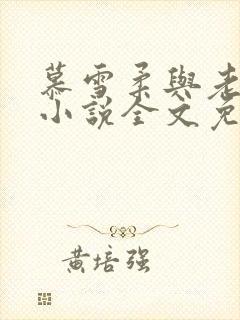 慕雪柔與老
小說全文免
黃培強